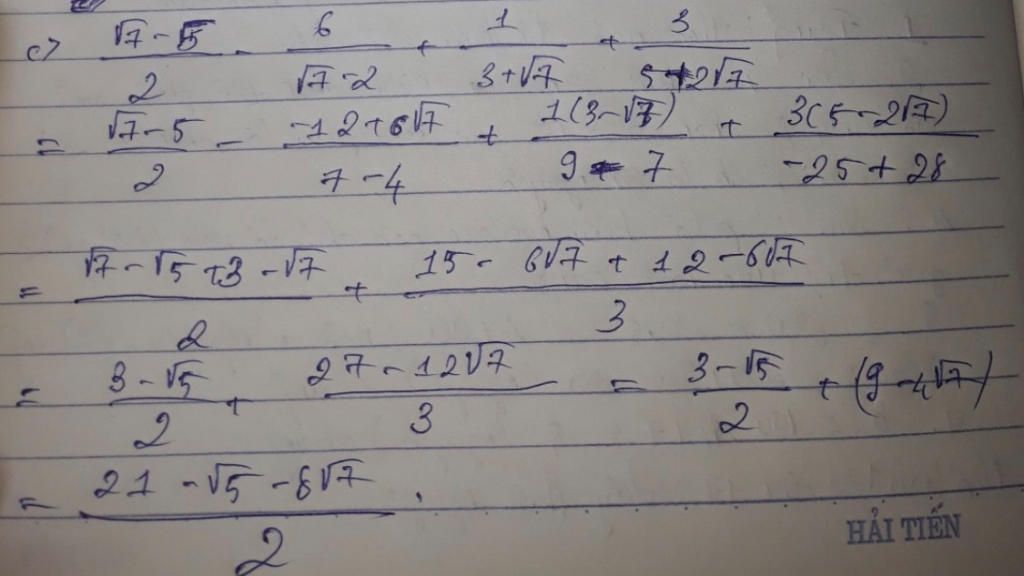 c) (√7 - 5)/2 - 6/(√7 - 2) + 1/(3 + √7) + 3/(5 + 2√7)
= (√7 - 5)/2 - (-12 + 6√7)/(7 - 4) + 1(3 - √7)/(9 - 7) + 3(5 - 2√7)/(-25 + 28)
= (√7 - √5 + 3 - √7)/2 + (15 - 6√7 + 12 - 6√7)/3
= (3 - √5)/2 + (27 - 12√7)/3 = (3 - √5)/2 + (9 - 4√7)
= (21 - √5 - 8√7)/2 .
HẢI TIẾN